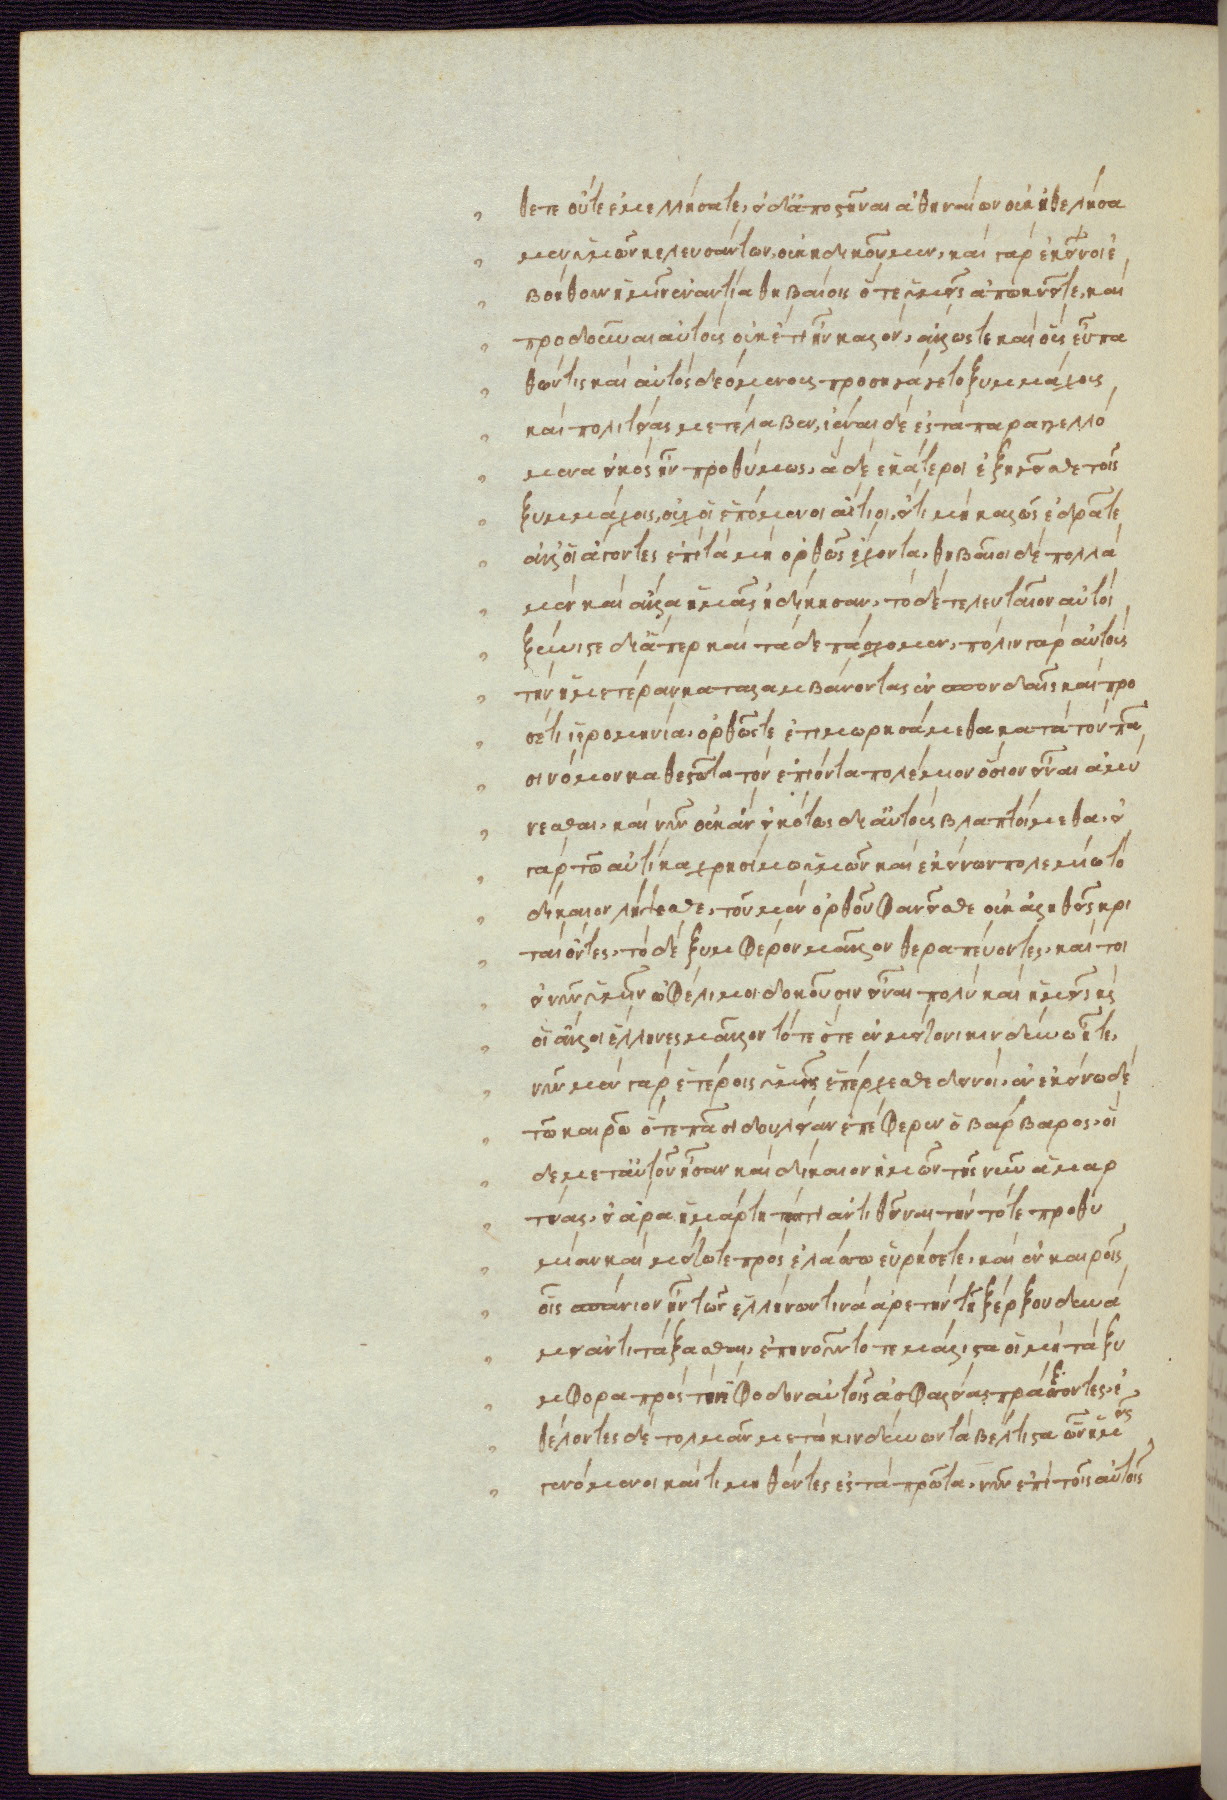 θετε οὔτε ἐμελλήσατε, εἰ δ' ἀποστῆναι ἀθηναίων οὐκ ἠθελήσα
μεν ὑμῶν κελευσάντων, οὐκ ἠδικοῦμεν, καὶ γὰρ ἐκεῖνοι ἐ
βοήθουν ἡμῖν ἐναντία θηβαίοις ὅτε ὑμεῖς ἀπωκνεῖτε, καὶ
προδοῦναι αὐτοὺς οὐκέτι ἦν καλόν, ἄλλως τε καὶ οὓς εὖ πα
θών τις καὶ αὐτὸς δεόμενος προσηγάγετο ξυμμάχους
καὶ πολιτείας μετέλαβεν, ἰέναι δὲ ἐς τὰ παραγγελλό
μενα εἰκὸς ἦν προθύμως, ἃ δὲ ἑκάτεροι ἐξηγεῖσθε τοῖς
ξυμμάχοις, οὐχ οἱ ἑπόμενοι αἴτιοι, εἴ τι μὴ καλῶς ἐδρᾶτε
ἀλλ' οἱ ἄγοντες ἐπὶ τὰ μὴ ὀρθῶς ἔχοντα, θηβαῖοι δὲ πολλὰ
μὲν καὶ ἄλλα ἡμᾶς ἠδίκησαν, τὸ δὲ τελευταῖον αὐτοὶ
ξύνιστε δι' ἅπερ καὶ τάδε πάσχομεν, πόλιν γὰρ αὐτοὺς
τὴν ἡμετέραν καταλαμβάνοντας ἐν σπονδαῖς καὶ προ
σέτι ἱερομηνία, ὀρθῶς τε ἐτιμωρησάμεθα κατὰ τὸν πᾶ
σι νόμον καθεστῶτα τὸν ἐπιόντα πολέμιον ὅσιον εἶναι ἀμύ
νεσθαι, καὶ νῦν οὐκ ἂν εἰκότως δι' αὐτοὺς βλαπτοίμεθα, εἰ
γὰρ τῶ αὐτίκα χρησίμω ὑμῶν καὶ ἐκείνων πολεμίω τὸ
δίκαιον λήψεσθε, τοῦ μὲν ὀρθοῦ φανεῖσθε οὐκ ἀληθεῖς κρι
ταὶ ὄντες, τὸ δὲ ξυμφέρον μᾶλλον θεραπεύοντες, καί τοι
εἰ νῦν ὑμῖν ὠφέλιμοι δοκοῦσιν εἶναι πολὺ καὶ ἡμεῖς κ(αὶ)
οἱ ἄλλοι ἕλληνες μᾶλλον τότε ὅτε ἐν μείζονι κινδύνω ἦτε,
νῦν μὲν γὰρ ἑτέροις ὑμεῖς ἐπέρχεσθε δεινοί, ἐν ἐκείνω δὲ
τῶ καιρῶ ὅτε πᾶσι δουλείαν ἐπέφερεν ὁ βάρβαρος, οἵ
δε μετ' αὐτοῦ ἦσαν καὶ δίκαιον ἡμῶν τῆς νῦν ἁμαρ
τίας, εἰ ἄρα ἡμάρτηται ἀντιθεῖναι τὴν τότε προθυ
μίαν καὶ μείζω τε πρὸς ἐλάσσω εὑρήσετε, καὶ ἐν καιροῖς
οἷς σπάνιον ἦν τῶν ἑλλήνων τινὰ ἀρετὴν τῆ ξέρξου δυνά
μει ἀντιτάξασθαι, ἐπηνοῦντό τε μάλιστα οἱ μὴ τὰ ξύ
μφορα πρὸς τὴν ἔφοδον αὐτοῖς ἀσφαλείας πράσσοντες, ἐ
θέλοντες δὲ τολμᾶν μετὰ κινδύνων τὰ βέλτιστα ὧν ἡμεῖς
γενόμενοι καὶ τιμηθέντες ἐς τὰ πρῶτα, νῦν ἐπὶ τοῖς αὐτοῖς